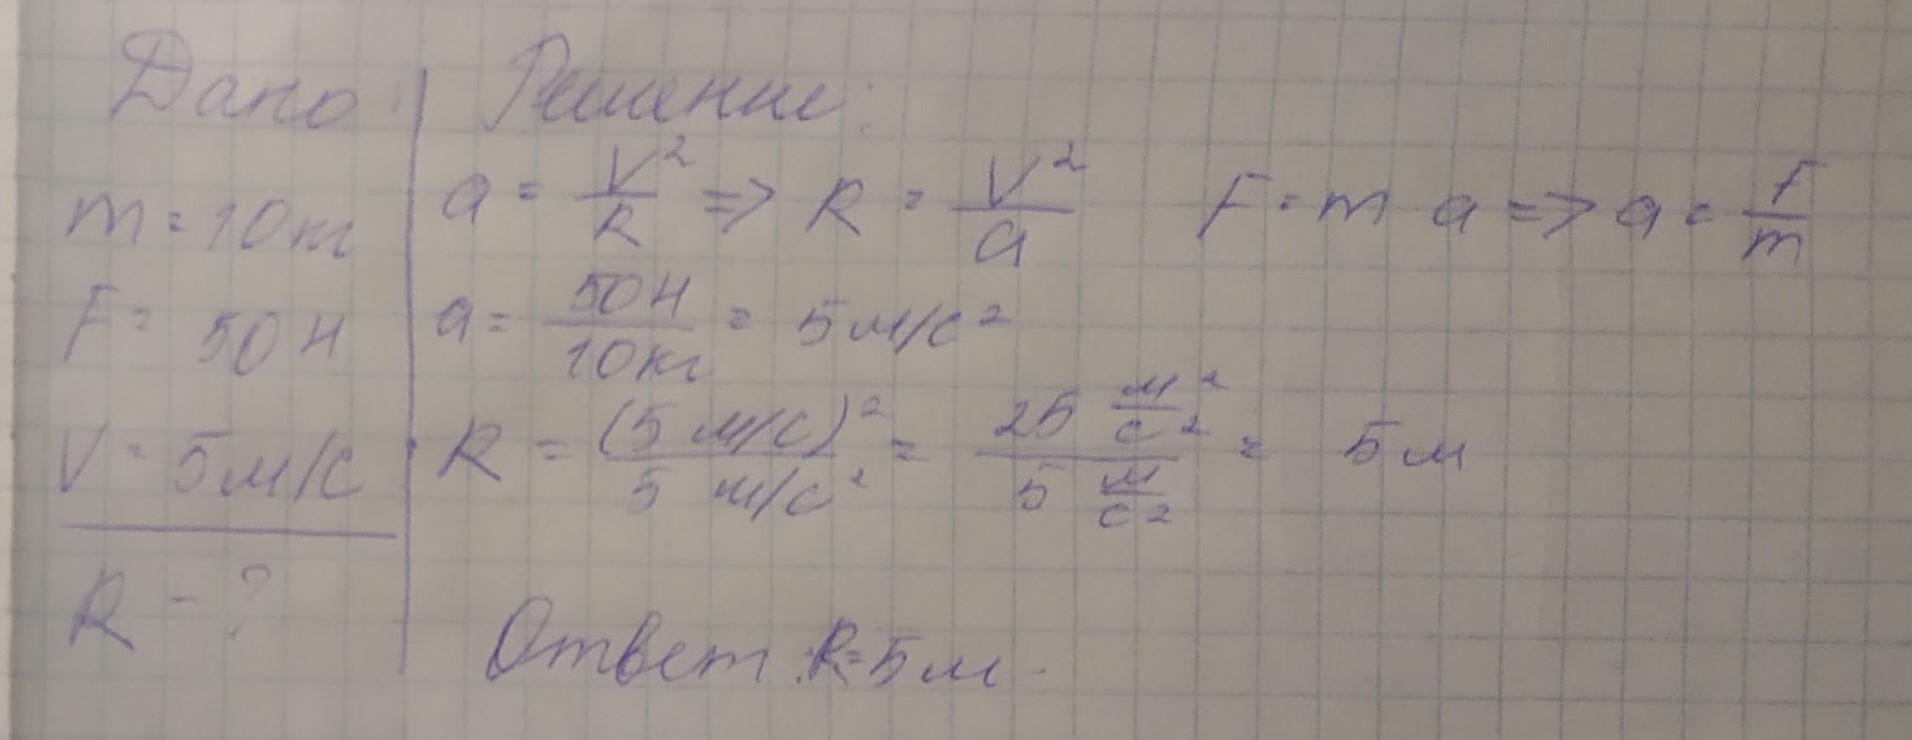 Дано:
m = 10 кг
F = 50 Н
V = 5 м/с
R - ?
Решение:
a = V²/R => R = V²/a F = m a => a = F/m
a = 50 Н/10 кг = 5 м/с²
R = (5 м/с)²/5 м/с² = 25 м²/с²/5 м/с² = 5 м
Ответ: R = 5 м.